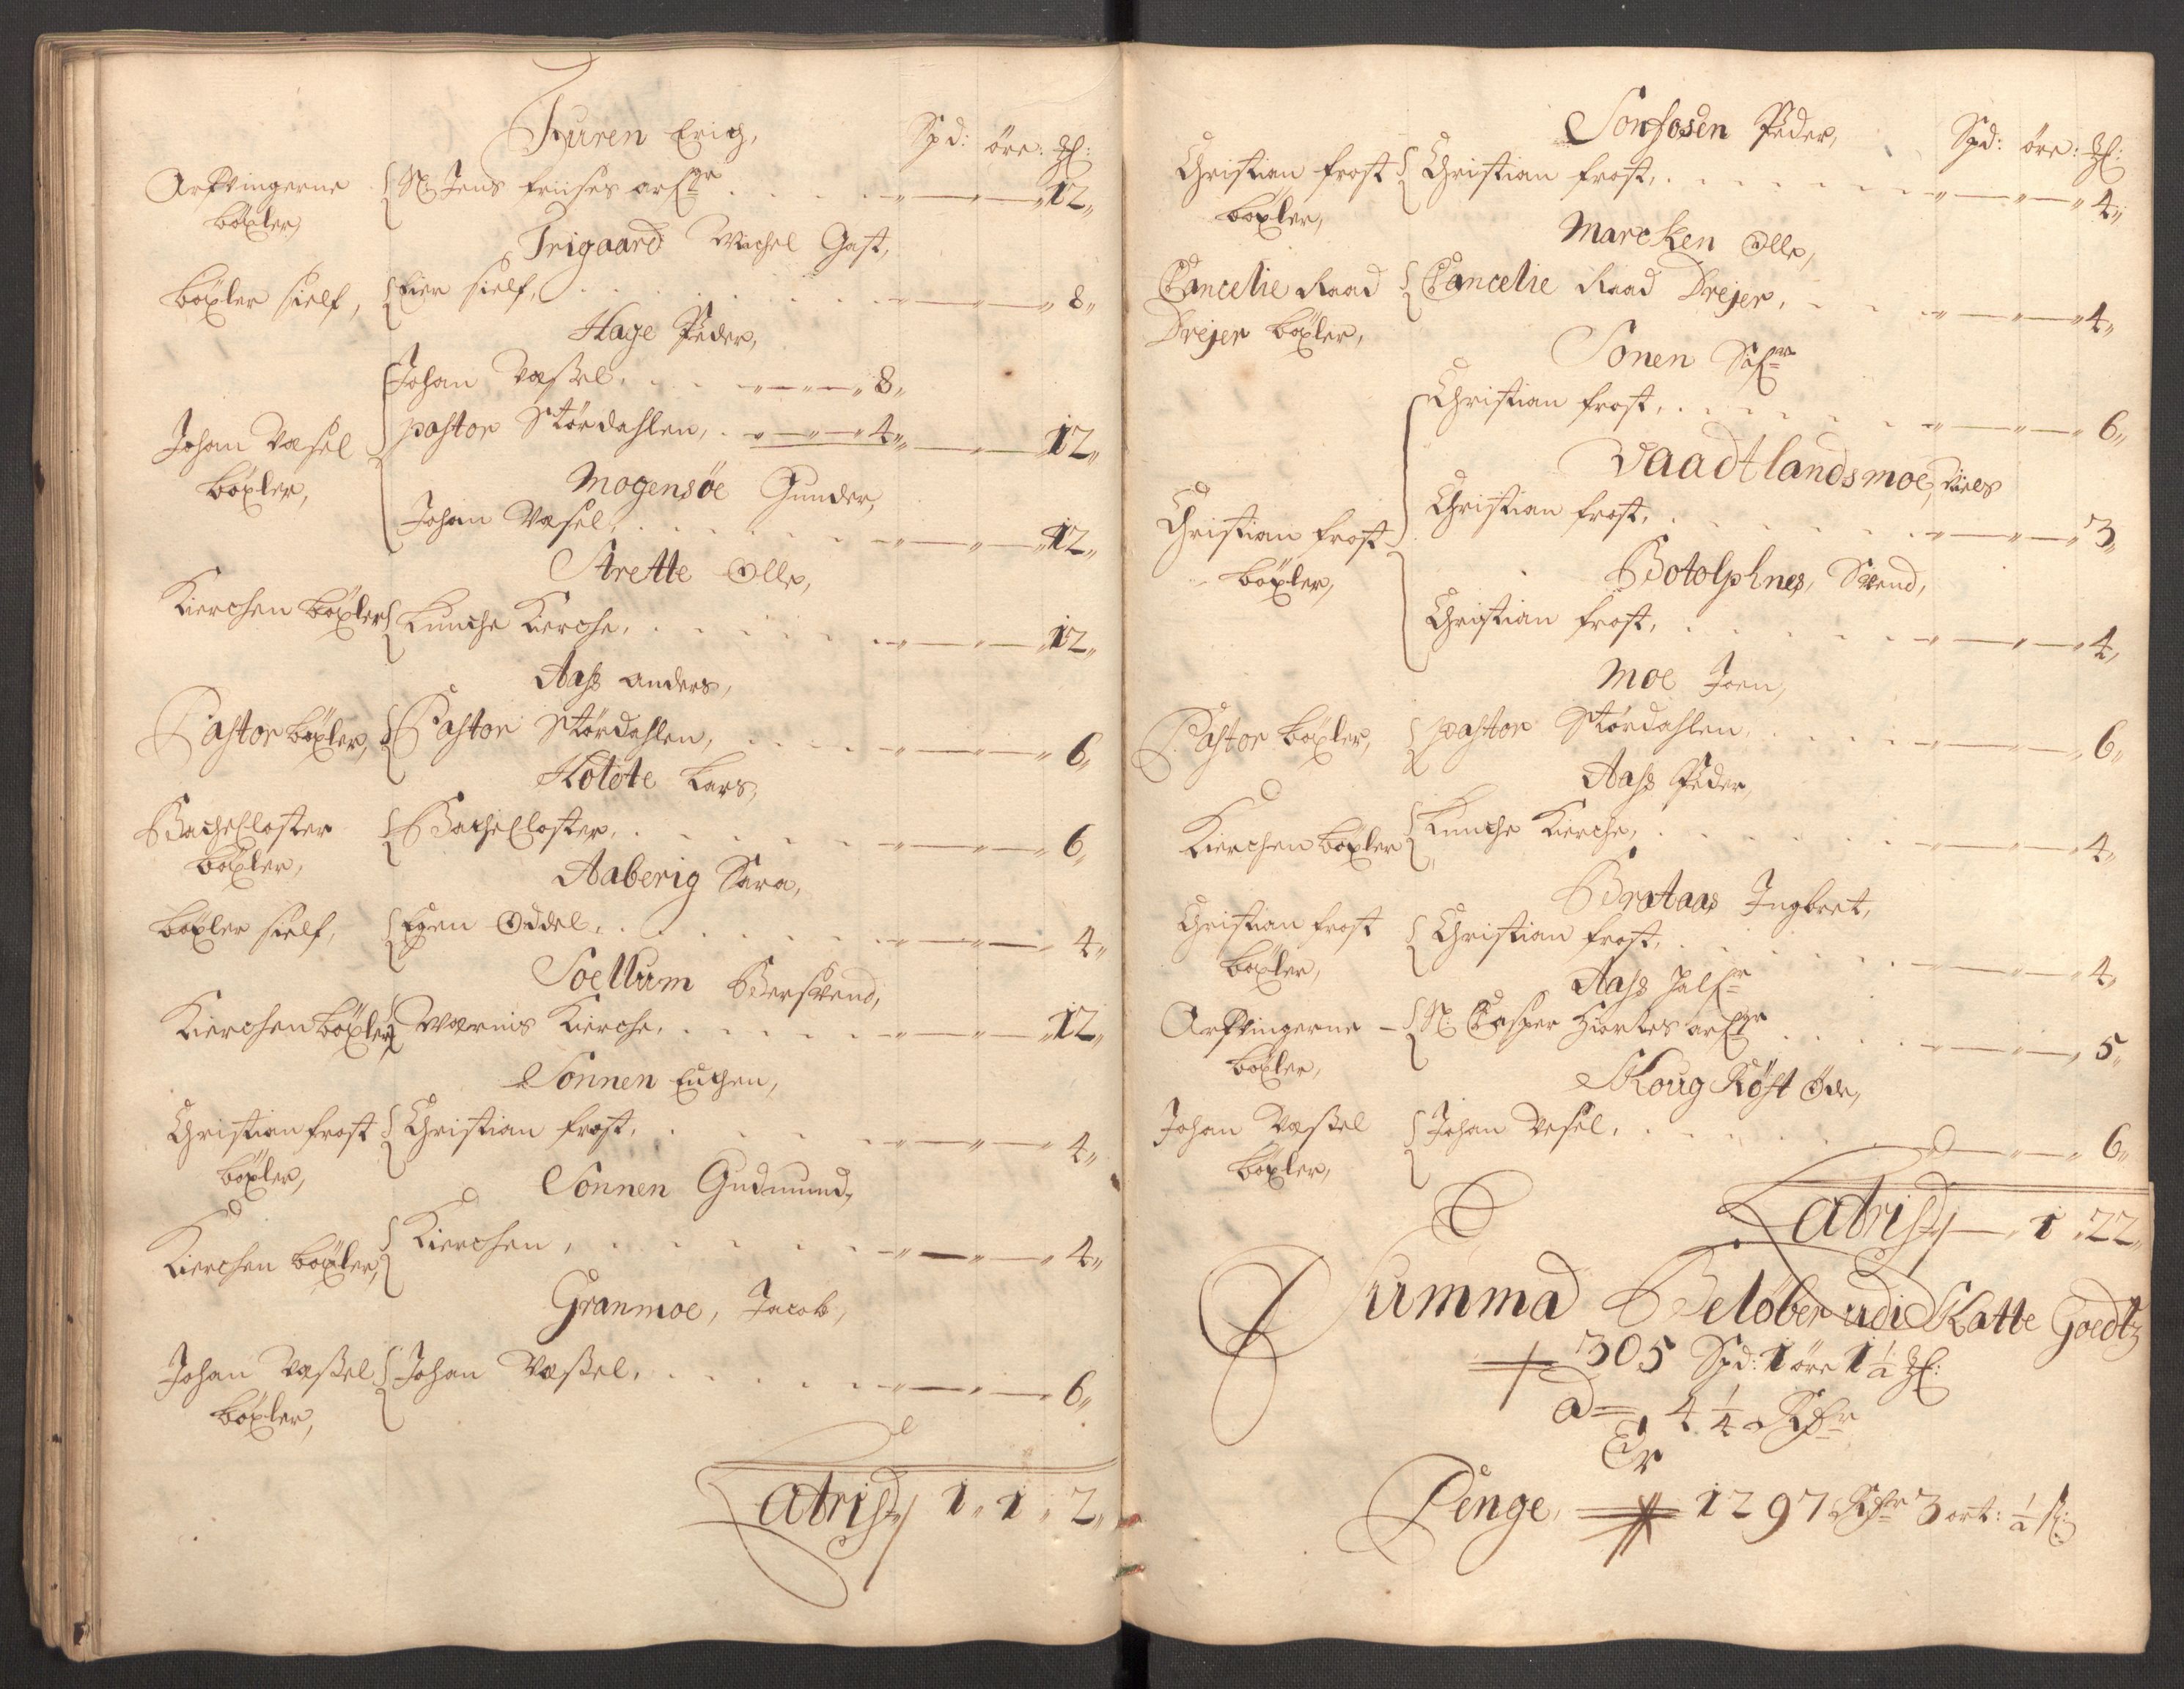 Furen Erich,
Spd: öre: ℔:
Arfvingerne böxler, Sl: Jens friises arfgr — 12„
Trigaard Michel Gast,
böxler sielf, Eier sielf, — 8„
Hage Peder,
Johan Væssel. — 8„
Johan Væsel böxler, pastor Stördahlen, — 4„ — 12„
Mogensöe Gunder,
Johan Væsel — 12„
Strette Olle,
Kierchen böxler Lunche Kierche, — 12„
Aass anders,
Pastor böxler, Pastor Stördahlen, — 6„
Hotote Lars,
Bache Closter böxler, Bache Closter, — 6„
Aaberig Sara,
böxler sielf, Egen Oddel, — 4„
Soellum Bersvend,
Kierchen böxler, Wærnis Kierche, — 12„
Sonnen Enchen,
Christian frost böxler, Christian frost, — 4„
Sonnen Gudmund,
Kierchen böxler, Kierchen, — 4„
Granmoe, Jacob,
Johan Væssel böxler, Johan Væssel, — 6„
Lateris 1„ 1„ 2„
Sonsosen Peder,
Spd: öre: ℔:
Christian frost böxler, Christian frost, — 4„
Marcken Olle,
Cancelie Raad Drejer böxler, Cancelie Raad Drejer, — 4„
Sonen Sifr
Christian frost, — 6„
Vaadtlandsmoe, Niels
Christian frost böxler, Christian frost, — 3„
Botolphnes, Svend,
Christian frost, — 4„
Moe Joen,
Pastor böxler, pastor Stördahlen, — 6„
Aass Peder,
Kierchen böxler Lunche Kierche, — 4„
Brataas Ingbret,
Christian frost böxler, Christian frost, — 4„
Aass Halfr
Arfvingerne böxler, Sl: Casper Hiortes arfgr — 5„
Skoug Röst Öde,
Johan Væssel böxler, Johan Vesel, — 6„
Lateris — „ 1 „ 22„
Summa Belöber udi Skatte Goedtz
305 Spd: 1 öre 1 ½ ℔:
a 4 ¼ Rdr
Er
Penge, 1297 Rdr 3 ort: ½ s: